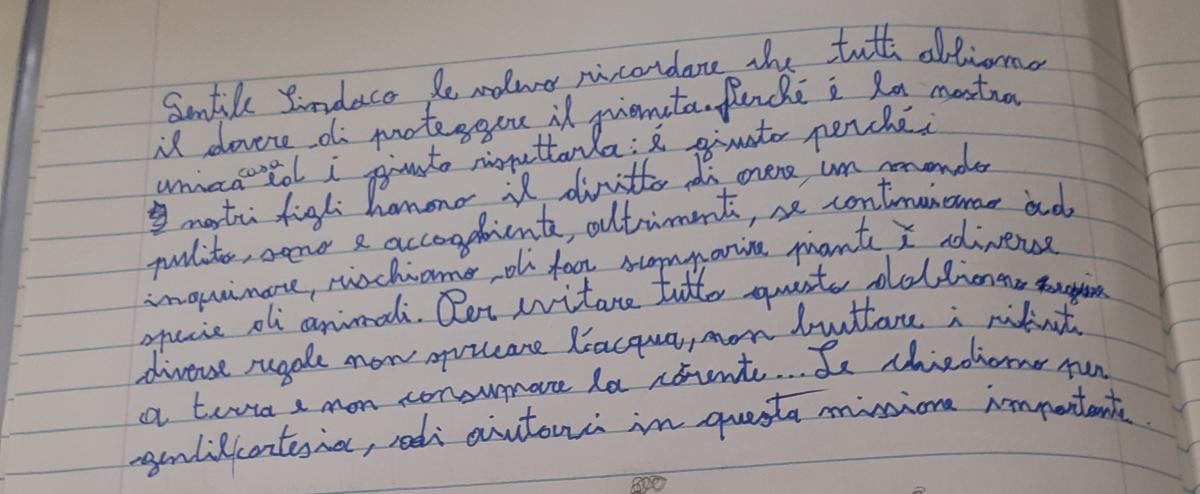 Gentile Sindaco le volevo ricordare che tutti abbiamo
il dovere di proteggere il pianeta. Perché é la nostra
unica casa ed é giusto rispettarla: é giusto perché i
nostri figli hanono il diritto di avere un mondo
pulito, sano e accogliente, altrimenti, se continuiamo ad
inquinare, rischiamo di far scomparire piante e diverse
specie di animali. Per evitare tutto questo dobbiamo
diverse regole non sprecare l'acqua, non buttare i rifiuti
a terra e non consumare la corente... Le chiediamo per
gentil cortesia, di aiutarci in questa missione importante.